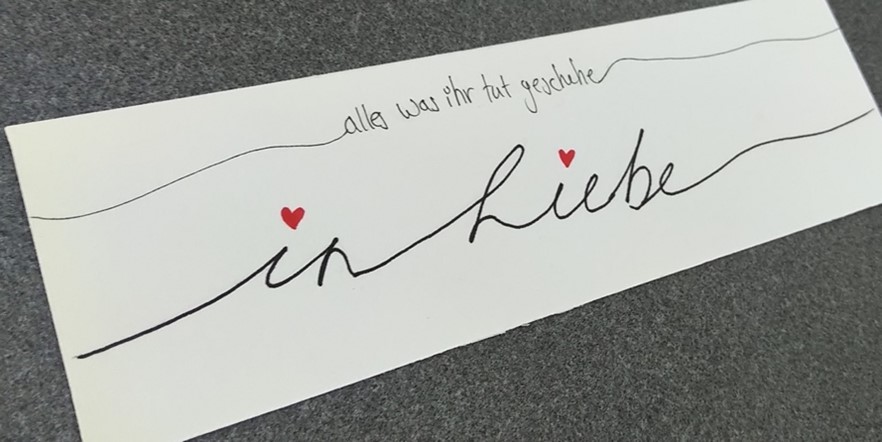 alles was ihr tut geschehe
in Liebe